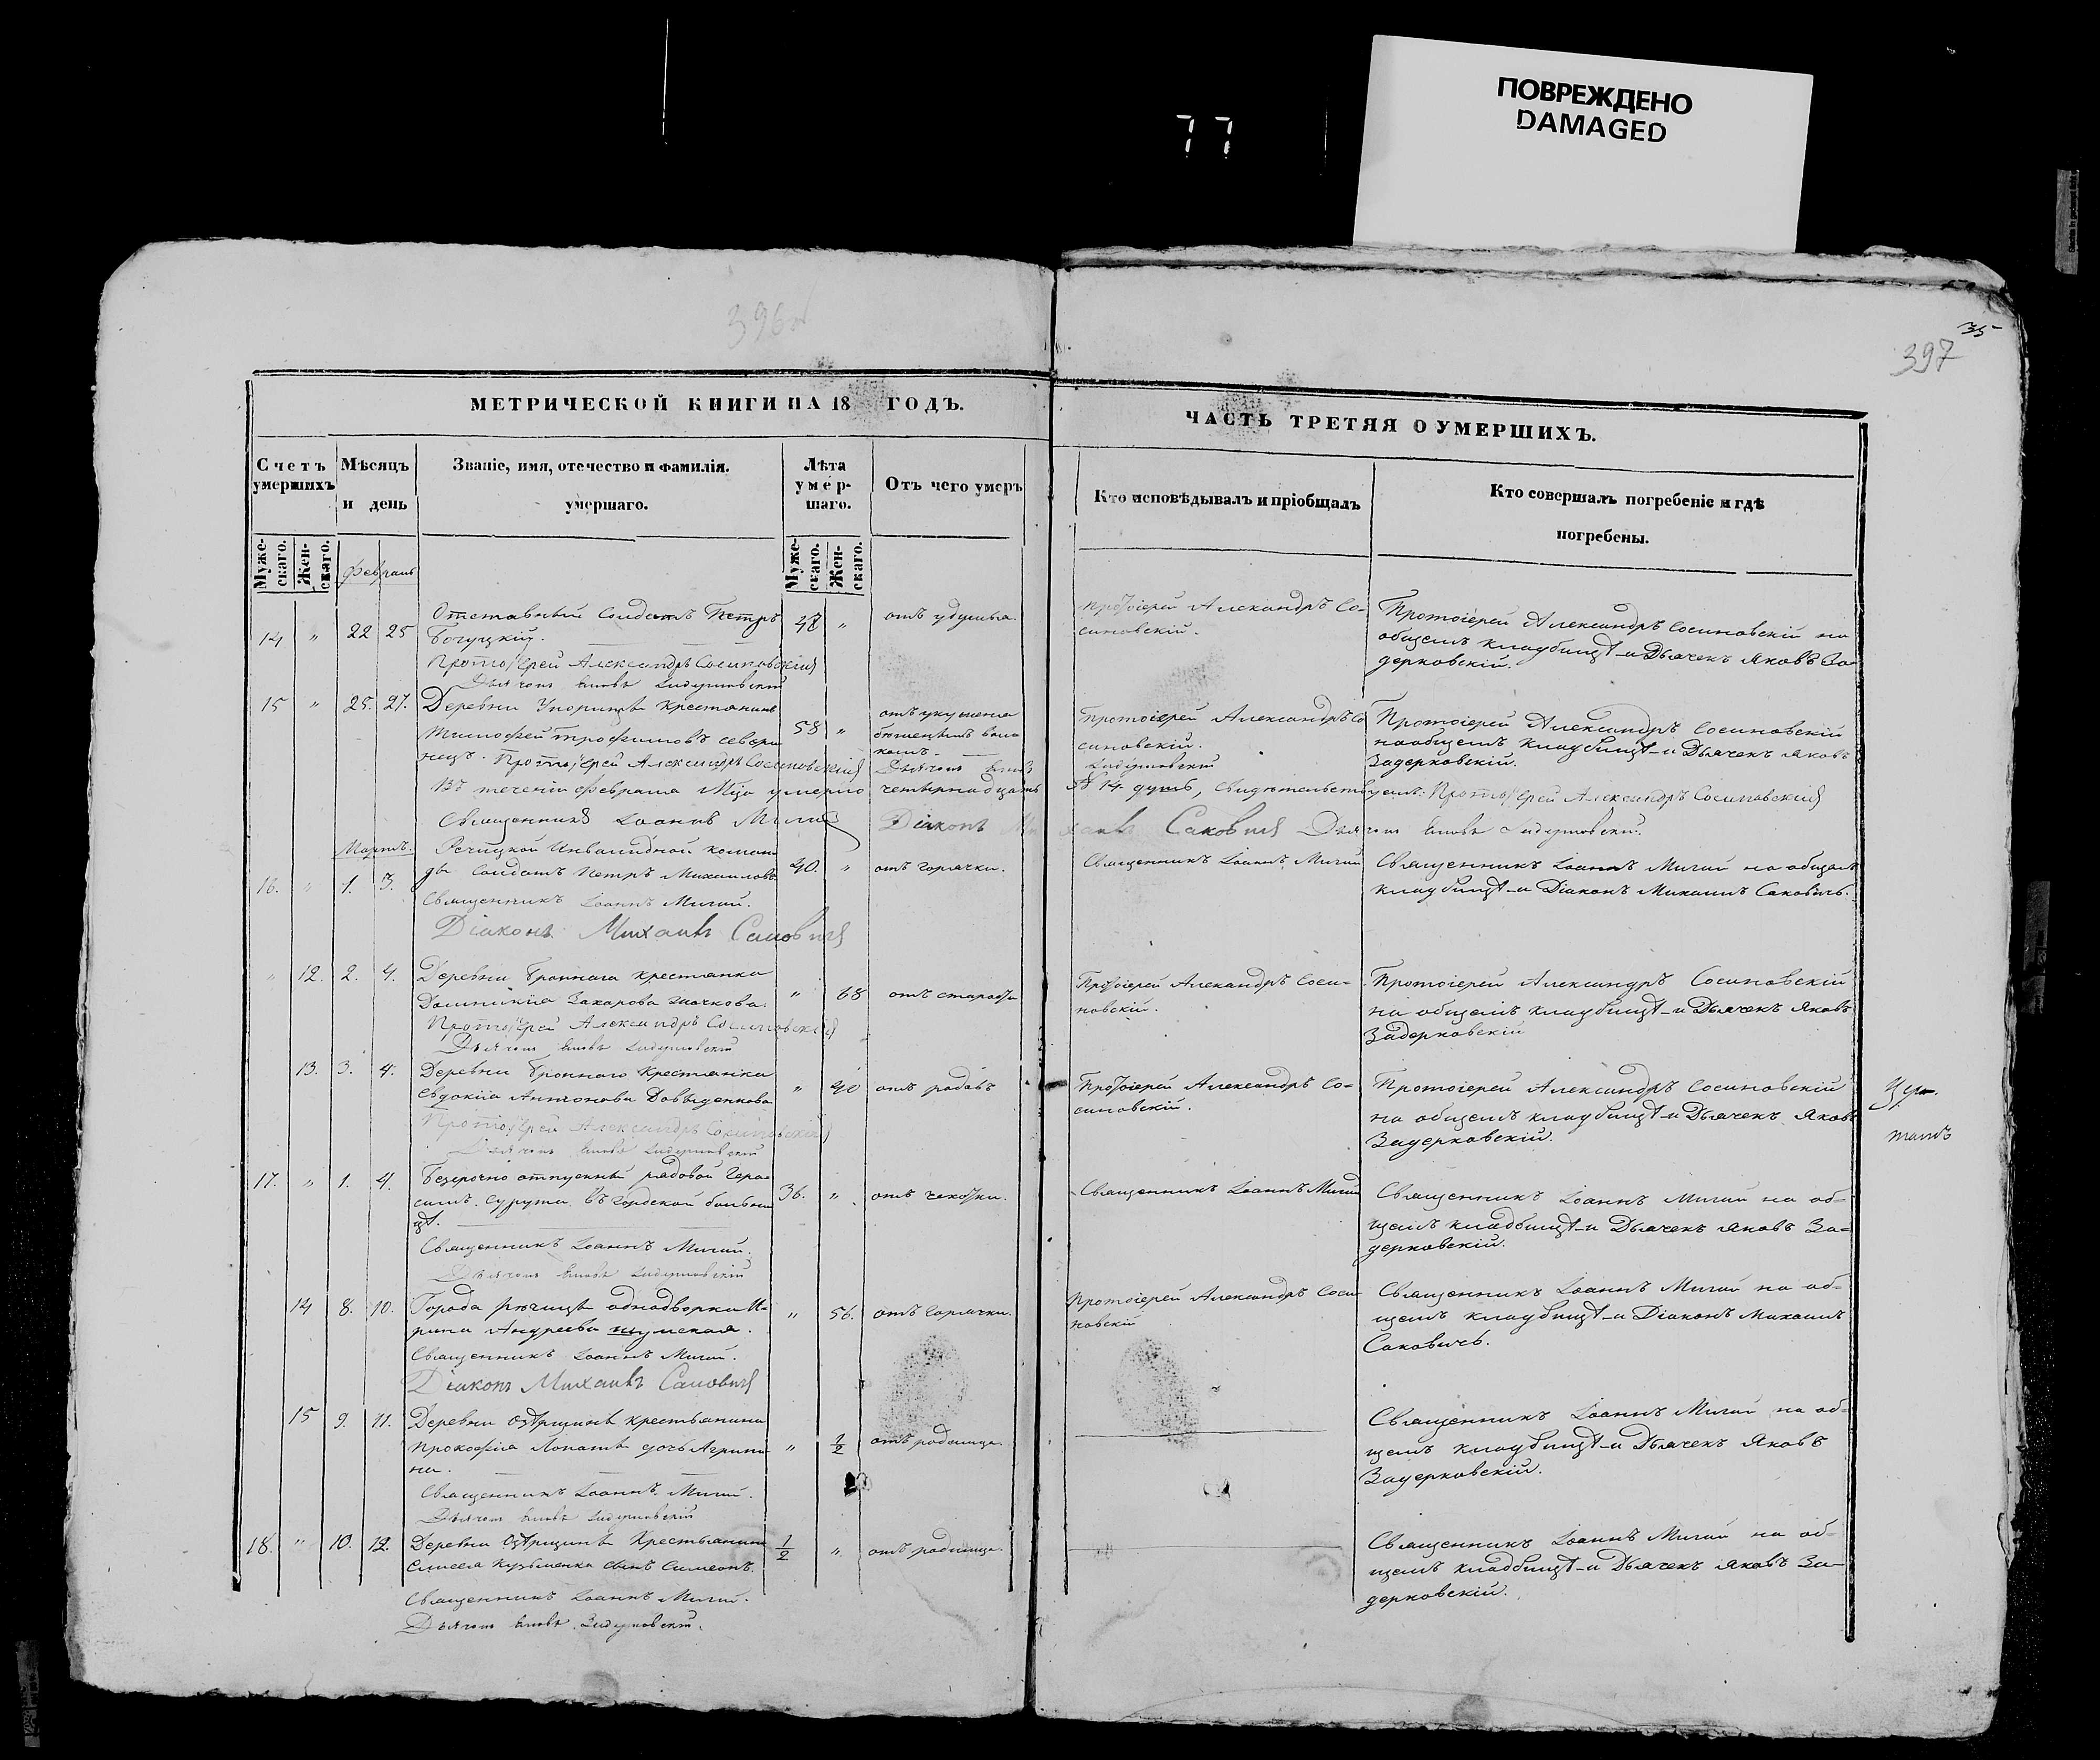 ПОВРЕЖДЕНО
DAMAGED
77
396
35
397
МЕТРИЧЕСКОЙ КНИГИ НА 18 ГОДЪ.
ЧАСТЬ ТРЕТЯЯ О УМЕРШИХЪ.
Счетъ умершихъ
Мѣсяцъ и день
Званіе, имя, отечество и фамилія. умершаго.
Лѣта умер-шаго.
Отъ чего умеръ
Кто исповѣдывалъ и пріобщалъ
Кто совершалъ погребеніе и гдѣ погребены.
Муже-скаго.
Жен-скаго.
Муже-скаго.
Жен-скаго.
Февраль
14 " 22 25
Отставный Солдатъ Петръ
Богуцкій.
Протоіерей Александръ Сосиновскій
Дьячокъ Яковъ Задерковскій
48 "
отъ удушья
Протоіерей Александръ Со-
синовскій.
Протоіерей Александръ Сосиновскій на
общемъ кладбищѣ и Дьячекъ Яковъ За-
дерковскій.
15 " 25. 27.
Деревни Крестьянинъ
Тимофей Трофимовъ
Протоіерей Александръ Сосиновскій
58 "
отъ укушенія
бѣшенымъ вол
комъ.
Дьячокъ Яковъ
Протоіерей Александръ Со
синовскій.
Задерковскій
Протоіерей Александръ Сосиновскій
на общемъ кладбищѣ и Дьячекъ Яковъ
Задерковскій.
Въ теченіи Февраля Мца умерло четырнадцать № 14 душъ, Свидѣтельствуемъ: Протоіерей Александръ Сосиновскій
Священникъ Іоаннъ Мигай Діаконъ Михаилъ Саковичъ Дьячокъ Яковъ Задерковскій.
Мартъ.
16. " 1. 3.
Речицкой Инвалидной коман
ды Солдатъ Петръ Михайловъ
Священникъ Іоаннъ Мигай.
Діаконъ Михаилъ Саковичъ
40. "
отъ горячки.
Священникъ Іоаннъ Мигай
Священникъ Іоаннъ Мигай на общемъ
кладбищѣ и Діаконъ Михаилъ Саковичъ.
" 12. 2. 4.
Деревни Броннаго крестьянка
Домникія Захарова
Протоіерей Александръ Сосиновскій
Дьячокъ Яковъ Задерковскій
" 68
отъ старости
Протоіерей Александръ Соси-
новскій.
Протоіерей Александръ Сосиновскій
на общемъ кладбищѣ и Дьячекъ Яковъ
Задерковскій
13. 3. 4.
Деревни Броннаго Крестьянка
Евдокія Антонова Давыденкова
Протоіерей Александръ Сосиновскій
Дьячокъ Яковъ Задерковскій
" 40
отъ родовъ
Протоіерей Александръ Со-
синовскій.
Протоіерей Александръ Сосиновскій
на общемъ кладбищѣ и Дьячекъ Яковъ
Задерковскій.
17. " 1. 4.
Безсрочно отпускный рядовой Гера-
симъ Сурута въ Городской больни
цѣ.
Священникъ Іоаннъ Мигай.
Дьячокъ Яковъ Задерковскій
36. "
отъ чахотки.
Священникъ Іоаннъ Мигай
Священникъ Іоаннъ Мигай на об-
щемъ кладбищѣ и Дьячекъ Яковъ За-
дерковскій.
14 8. 10.
Города Рѣчицы однодворка И-
рина Андреева Шумская.
Священникъ Іоаннъ Мигай.
Діаконъ Михаилъ Саковичъ
" 56.
отъ горячки.
Протоіерей Александръ Соси-
новскій
Священникъ Іоаннъ Мигай на об-
щемъ кладбищѣ и Діаконъ Михаилъ
Саковичъ.
15 9. 11.
Деревни Озерщины крестьянина
Прокофія Лопаты дочь Агрипи
на.
Священникъ Іоаннъ Мигай.
Дьячокъ Яковъ Задерковскій
" 1/2
отъ родимца.
Священникъ Іоаннъ Мигай на об-
щемъ кладбищѣ и Дьячекъ Яковъ
Задерковскій.
18. " 10. 12.
Деревни Озерщины Крестьянина
Елисея Кузьменка сынъ Симеонъ.
Священникъ Іоаннъ Мигай.
Дьячокъ Яковъ Задерковскій.
1/2 "
отъ родимца.
Священникъ Іоаннъ Мигай на об-
щемъ кладбищѣ и Дьячекъ Яковъ За-
дерковскій.